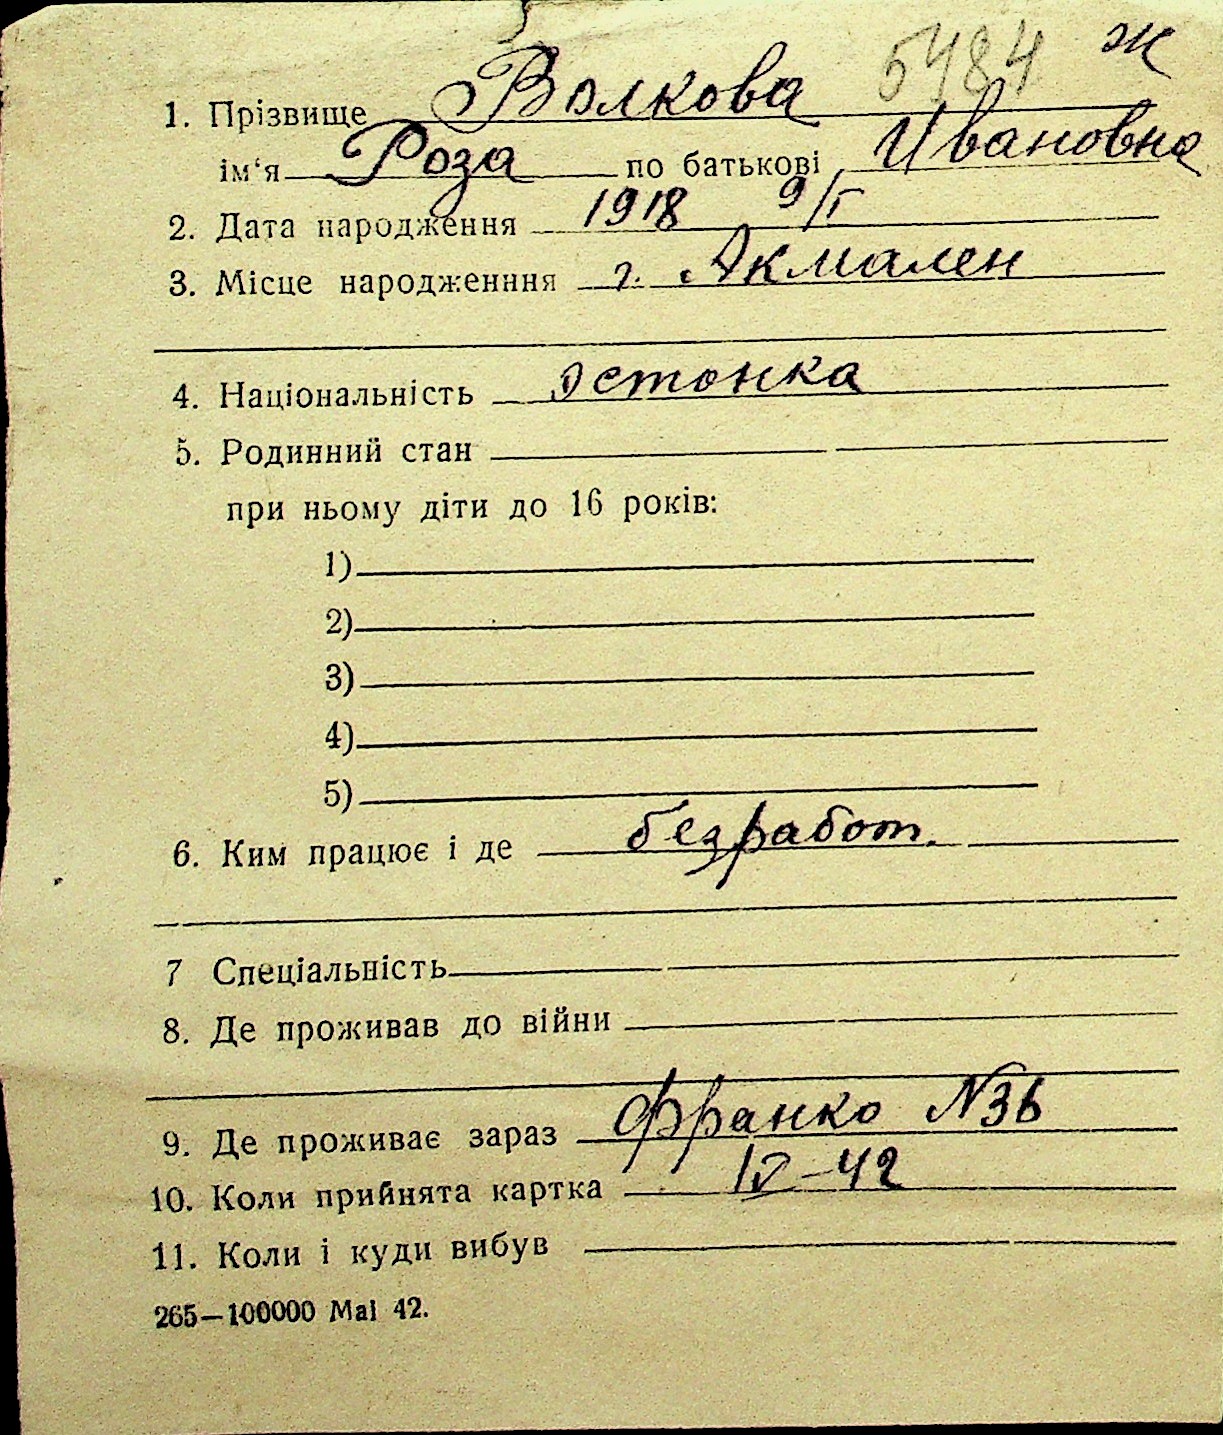 5484 ж
1. Прізвище Волкова
ім‘я Роза по батькові Ивановна
2. Дата народження 1918 9/I
3. Місце народженння г. Акмален
4. Національність эстонка
5. Родинний стан
при ньому діти до 16 років:
1)
2)
3)
4)
5)
6. Ким працює і де безработ.
7 Спеціальність
8. Де проживав до війни
9. Де проживає зараз Франко N36
10. Коли прийнята картка IV-42
11. Коли і куди вибув
265—100000 Mai 42.